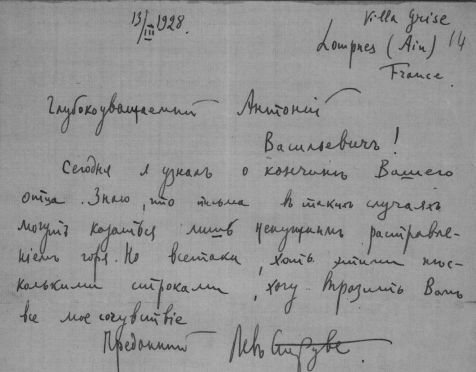 13/III 1928.
Villa Grise
Lompnes (Ain) 14
France.
Глубокоуважаемый Антоній
Васильевичъ!
Сегодня я узналъ о кончинѣ Вашего
отца. Знаю, что письма въ такихъ случаяхъ
могутъ казаться лишь ненужнымъ растравле-
ніемъ горя. Но всетаки, хоть этими нѣс-
колькими строками, хочу выразить Вамъ
все мое сочувствіе
Преданный Левъ Струве.